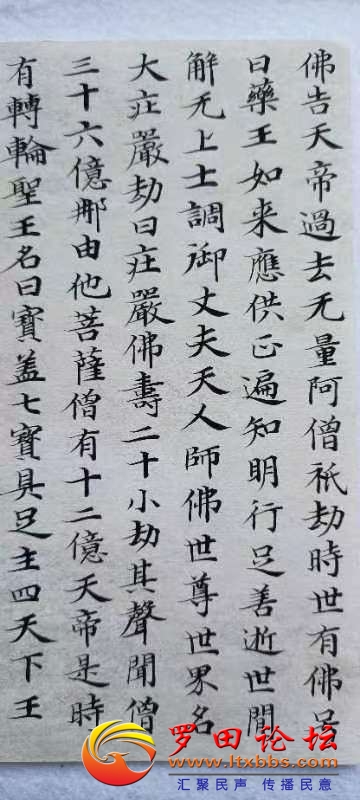 佛告天帝過去无量阿僧祇劫時世有佛号
曰藥王如来應供正遍知明行足善逝世間
解无上士調御丈夫天人師佛世尊世界名
大庄嚴劫曰庄嚴佛壽二十小劫其聲聞僧
三十六億那由他菩薩僧有十二億天帝是時
有轉輪聖王名曰寶盖七寶具足主四天下王
罗田论坛
www.ltxbbs.com
汇聚民声 传播民意